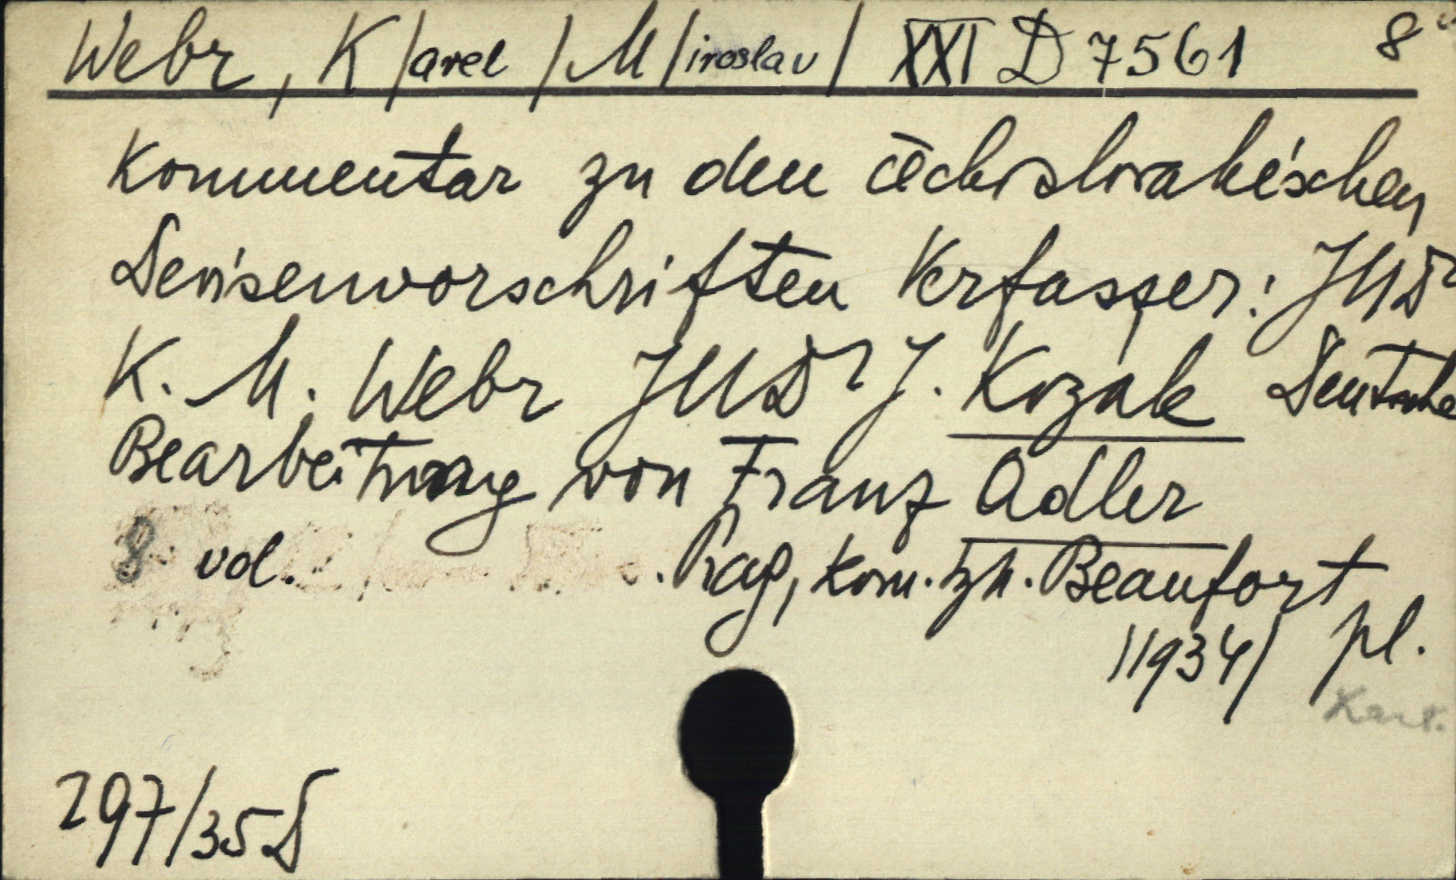 Webr, K/arel/ M/iroslav/ XXI D 7561 8°
Kommentar zu den čechoslovakischen
Devisenvorschriften Verfasser: JUDr
K. M. Webr JUDr J. Kozak Deutsche
Bearbeitung von Franz Adler
8 vol. Prag, Kom. bh. Beaufort
/1934/ pl.
Kart.
297/35 D